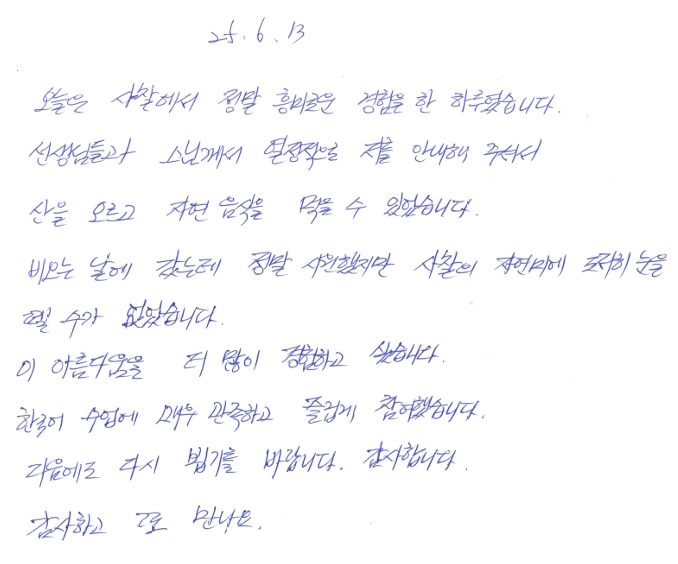 25.6.13
오늘은 사찰에서 정말 흥미로운 경험을 한 하루였습니다.
선생님들과 스님께서 열정적으로 저를 안내해 주셔서
산을 오르고 자연 음식을 먹을 수 있었습니다.
비오는 날에 갔는데 정말 시원했지만 사찰의 자연미에 도저히 눈을
뗄 수가 없었습니다.
이 아름다움을 더 많이 경험하고 싶습니다.
한국어 수업에 매우 만족하고 즐겁게 참여했습니다.
다음에도 다시 뵙기를 바랍니다. 감사합니다.
감사하고 또 만나요.